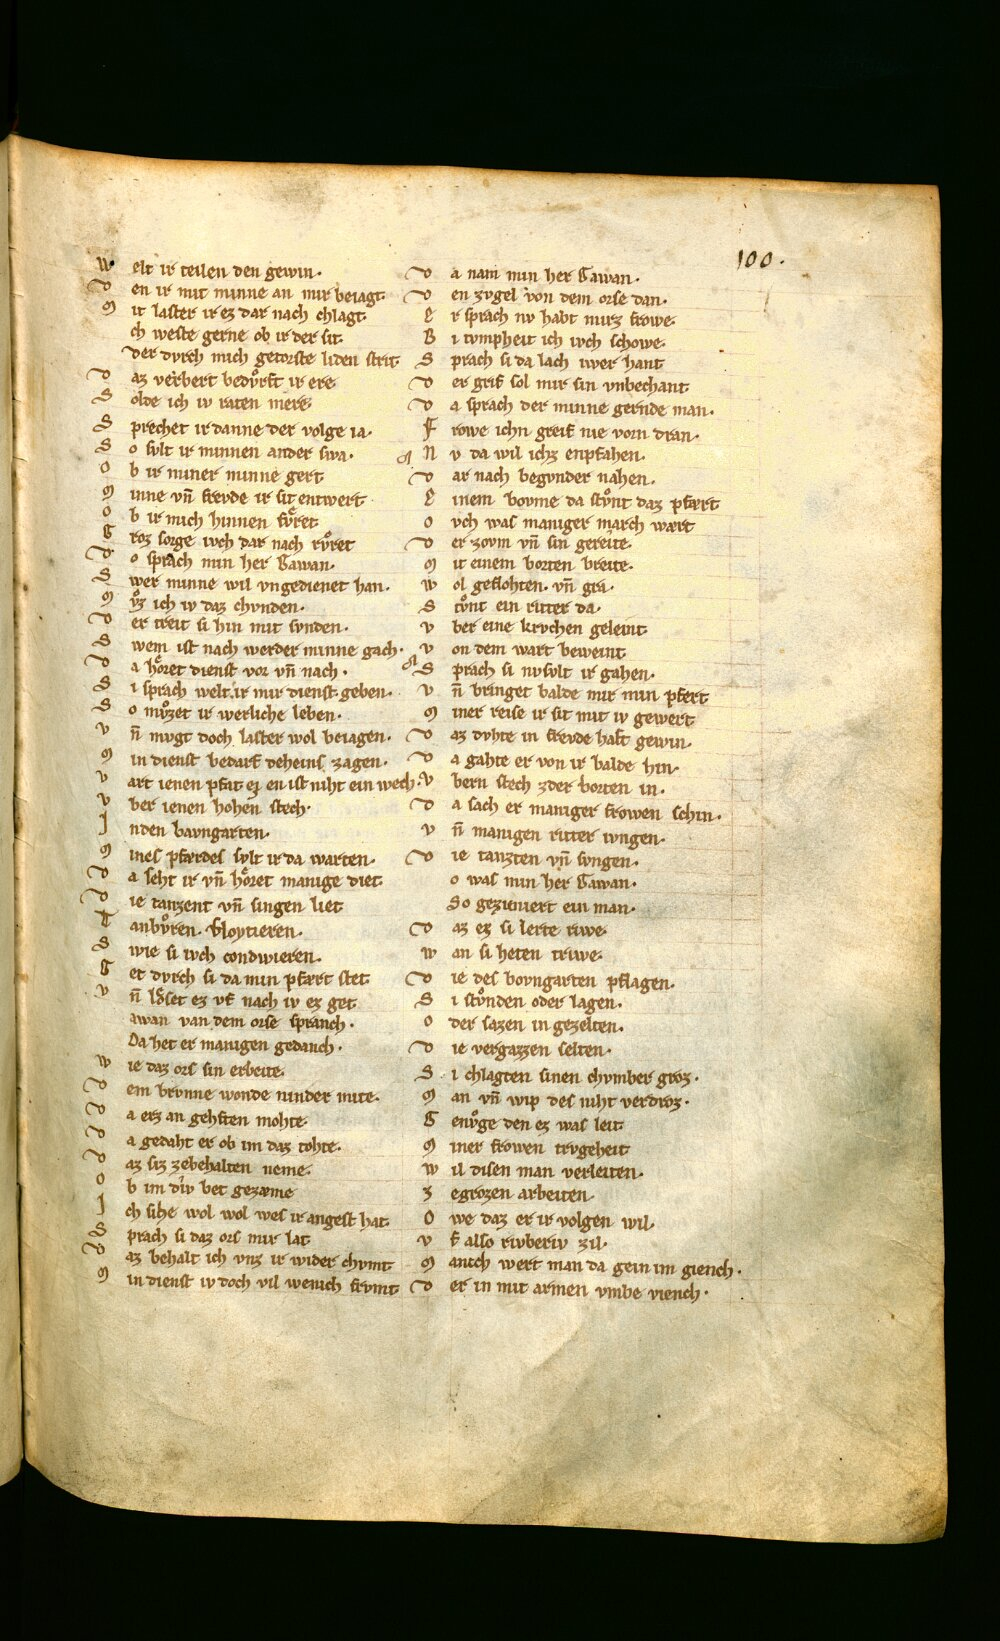 100.
W elt ir teilen den gewin.
D en ir mit minne an mir beiagt.
M it laster ir ez dar nach chlagt.
ch weste gerne ob ir der sit.
Der dvrch mich getorste liden strit.
D az verbert bedvͦrft ir ere.
S olde ich iv raten mere
S prechet ir danne der volge ia.
S o svlt ir minnen ander swa.
O b ir miner minne gert
M inne vn̄ frevde ir sit entwert
O b ir mich hinnen fvͤret
G roz sorge ivch dar nach rvͦret
D o sprach min her Gawan.
S wer minne wil vngedienet han.
M vͦz ich iv daz chvnden.
D er treit si hin mit svnden.
S wem ist nach werder minne gach.
D a hoͤret dienst vor vn̄ nach.
S i sprach welt ir mir dienst geben.
S o mvͦzet ir werliche leben.
V n̄ mvgt doch laster wol beiagen.
M in dienst bedarf deheins zagen.
V art ienen pfat ez en ist niht ein wech.
V ber ienen hohen stech.
J nden bavngarten.
M ines pfærdes svlt ir da warten.
D a seht ir vn̄ hoͤret manige diet.
D ie tanzent vn̄ singen liet
T anbvͦren. vloytieren.
S wie si ivch condwieren.
G et dvrch si da min pfært stet
V n̄ loͤset ez vf nach iv ez get.
awan van dem orse spranch.
Da het er manigen gedanch.
W ie daz ors sin erbeite.
D em brvnne wonde ninder mite.
D a erz an gehften mohte.
D a gedaht er ob im daz tohte.
D az siz zebehalten neme.
O b im div bet gezæme
J ch sihe wol wol wes ir angest hat.
S prach si daz ors mir lat
D az behalt ich vnz ir wider chvmt
M in dienst iv doch vil wenich frvmt
D a nam min her Gawan.
D en zvgel von dem orse dan.
E r sprach nv habt mirz frowe.
B i tvmpheit ich ivch schowe.
S prach si da lach iwer hant
D er grif sol mir sin vnbechant
D a sprach der minne gernde man.
F rowe ichn greif nie vorn dran.
N v da wil ichz enpfahen.
D ar nach begvnder nahen.
E inem bovme da stvͦnt daz pfært
O vch was maniger march wært
D er zovm vn̄ sin gereite.
M it einem borten breite.
W ol geflohten. vn̄ gra.
S tvͦnt ein ritter da.
V ber eine krvchen geleint
V on dem wart beweint
S prach si nv svlt ir gahen.
V n̄ bringet balde mir min pfert
M iner reise ir sit mit iv gewert
D az dvhte in frevde haft gewin.
D a gahte er von ir balde hin.
V bern stech zder borten in.
D a sach er maniger frowen schin.
V n̄ manigen ritter ivngen.
D ie tanzten vn̄ svngen.
o was min her Gawan.
So gezimiert ein man.
D az ez si lerte riwe.
W an si heten triwe.
D ie des bovngarten pflagen.
S i stvͦnden oder lagen.
O der sazen in gezelten.
D ie vergazzen selten.
S i chlagten sinen chvmber groz.
M an vn̄ wip des niht verdroz.
G envͦge den ez was leit.
M iner frowen trvgeheit
W il disen man verleiten.
Z egrozen arbeiten.
O we daz er ir volgen wil.
V f also rivberiv zil.
M anich wert man da gein im giench.
D er in mit armen vmbe viench.